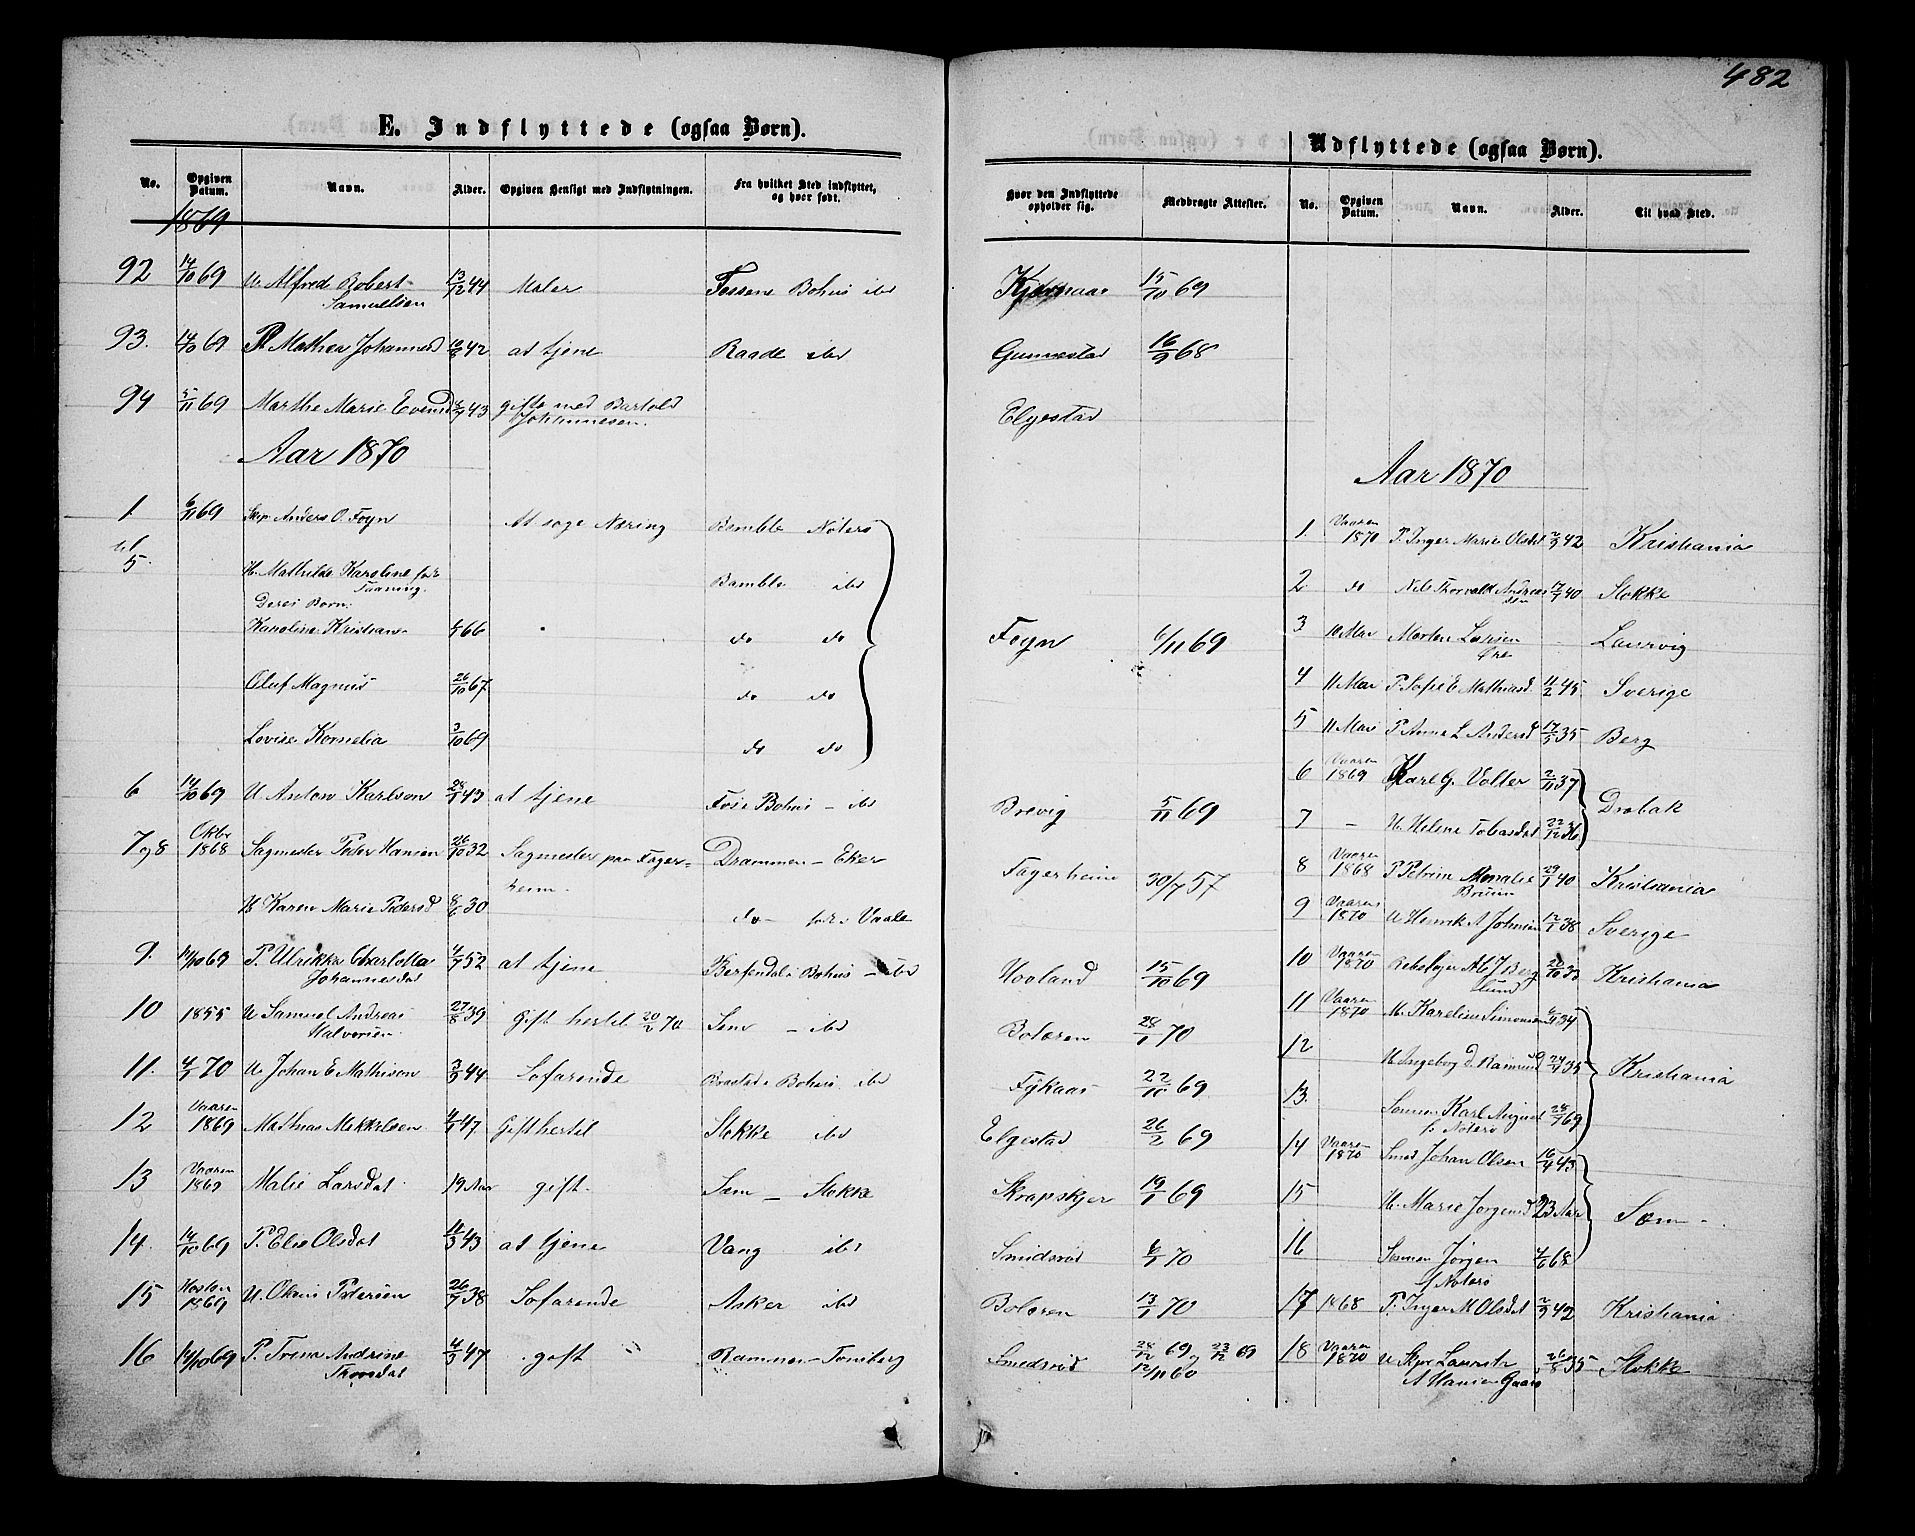 482
E. Indflyttede (ogsaa Børn).
No. Opgiven Datum. Navn. Alder. Opgiven Hensigt med Indflytningen. Fra hvilket Sted indflyttet, og hvor født.
1869
92 14/10 69 U. Alfred Robert Samuelsen 13/2 44 Maler Fossene Bohus ibd
93. 14/10 69 P. Mathea Johannesd 42 at tjene Raade ibd
94 5/11 69 Marthe Marie Evensd 43 gifte med Bartold Johannesen.
Aar 1870
1. 6/11 69 Skp. Anders O. Foyn At søge Næring Bamble Nøterø
til
5. H. Mathilde Karoline Bamble ibd
Deres Børn:
Karoline Kristiane 66 do do
Oluf Magnus 26/10 67 do do
Lovise Kornelia 3/10 69 do do
6 14/10 69 U. Anton Karlsen 43 at tjene Foss Bohus - ibd
7 og 8 Oktbr 1868 Sagmester Peder Hansen 26/10 32 Sagmester paa Fagerheim. Drammen - Eker
H. Karen Marie Pedersd 8/6 30 do - Vaale
9. 14/10 69 P. Ulrikka Charlotta Johannesdat 52 at tjene Bohus - ibd
10 1855 U Samuel Andreas Halvorsen 27/8 39 Gift hertil 20/2 70 Sem - ibd
11. 70 U. Johan E Mathisen 44 Søfarende Bohus ibd
12 Vaaren 1869 Mathias Mikkelsen 47 Gift hertil Stokke ibd
13 Vaaren 1869 Malie Larsdat 19 Aar gift. Sem - Stokke
14. 14/10 69 P. Else Olsdat 43 at tjene Vang ibd
15 Høsten 1869 U. Olaus Pedersen 38 Søfarende Asker ibd
16 14/10 69 P. Trina Andrine Thorsdat 47 gift Ramnes - Tønsberg
Hvor den Indflyttede opholder sig. Medbragte Attester.
15/10 69
Gunnestad 16/9 68
Elgestad
Foyn 6/11 69
Brevig 5/11 69
Fagerheim 30/7 57
Hooland 15/10 69
Bolæren 28/1 70
Fykaas 22/10 69
Elgestad 26/2 69
Skrapskjer 19/1 69
Smidsrød 70
Bolæren 13/1 70
Smidsrød 28/12 69 og 23/12 69
12/11 60
Udflyttede (ogsaa Børn).
No. Opgiven Datum. Navn. Alder. Til hvad Sted.
Aar 1870
1. Vaaren 1870 P. Inger Marie Olsdat 2/9 42 Kristiania
2. do Nils Thorvald Andreassen 40 Stokke
3 10 Mai Morten Larsen Øre Laurvig
4 11 Mai P. Sofie E Mathiasd. 11/2 45. Sverige
5 11 Mai P. Anne L Andersd 17/5 35 Berg
6 Vaaren 1869 Karl G. Volter 2/11 37 Drøbak
7 - H. Helene Tobiasdat 22/12 36
8 Vaaren 1868 P. Petrine Bruun 40 Kristiania
9 Vaaren 1870 U Henrik A Johnsen 12/1 38 Sverige
10 Vaaren 1870 Berg Lund Kristiania
11 Vaaren 1870 M. Karelius Simonsen 34
12 H. Ingeborg 35 Kristiania
13. Sønnen Karl August 69
f. Nøterø
14 Vaaren 1870 Smed Johan Olsen 16/4 43
15 H. Marie Jørgensd 23 Aar Sem
16 Sønnen Jørgen 68
f Nøterø
17 1868 P. Inger M Olsdat 2/9 42 Kristiania
18 Vaaren 1870 U Skpr Lauritz A Hansen Gaasø 26/8 35 Stokke